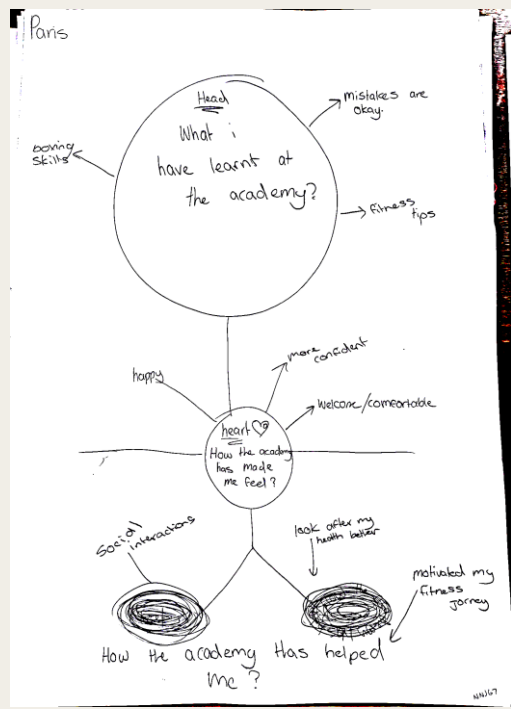 Paris
Head
What i
have learnt at
the academy?
mistakes are
okay.
boxing
skills
fitness
tips
happy
more
confident
welcome/comfortable
heart
How the academy
has made
me feel?
Social
interactions
look after my
health better
motivated my
fitness
jorney
How the academy Has helped
me?
NNJ67